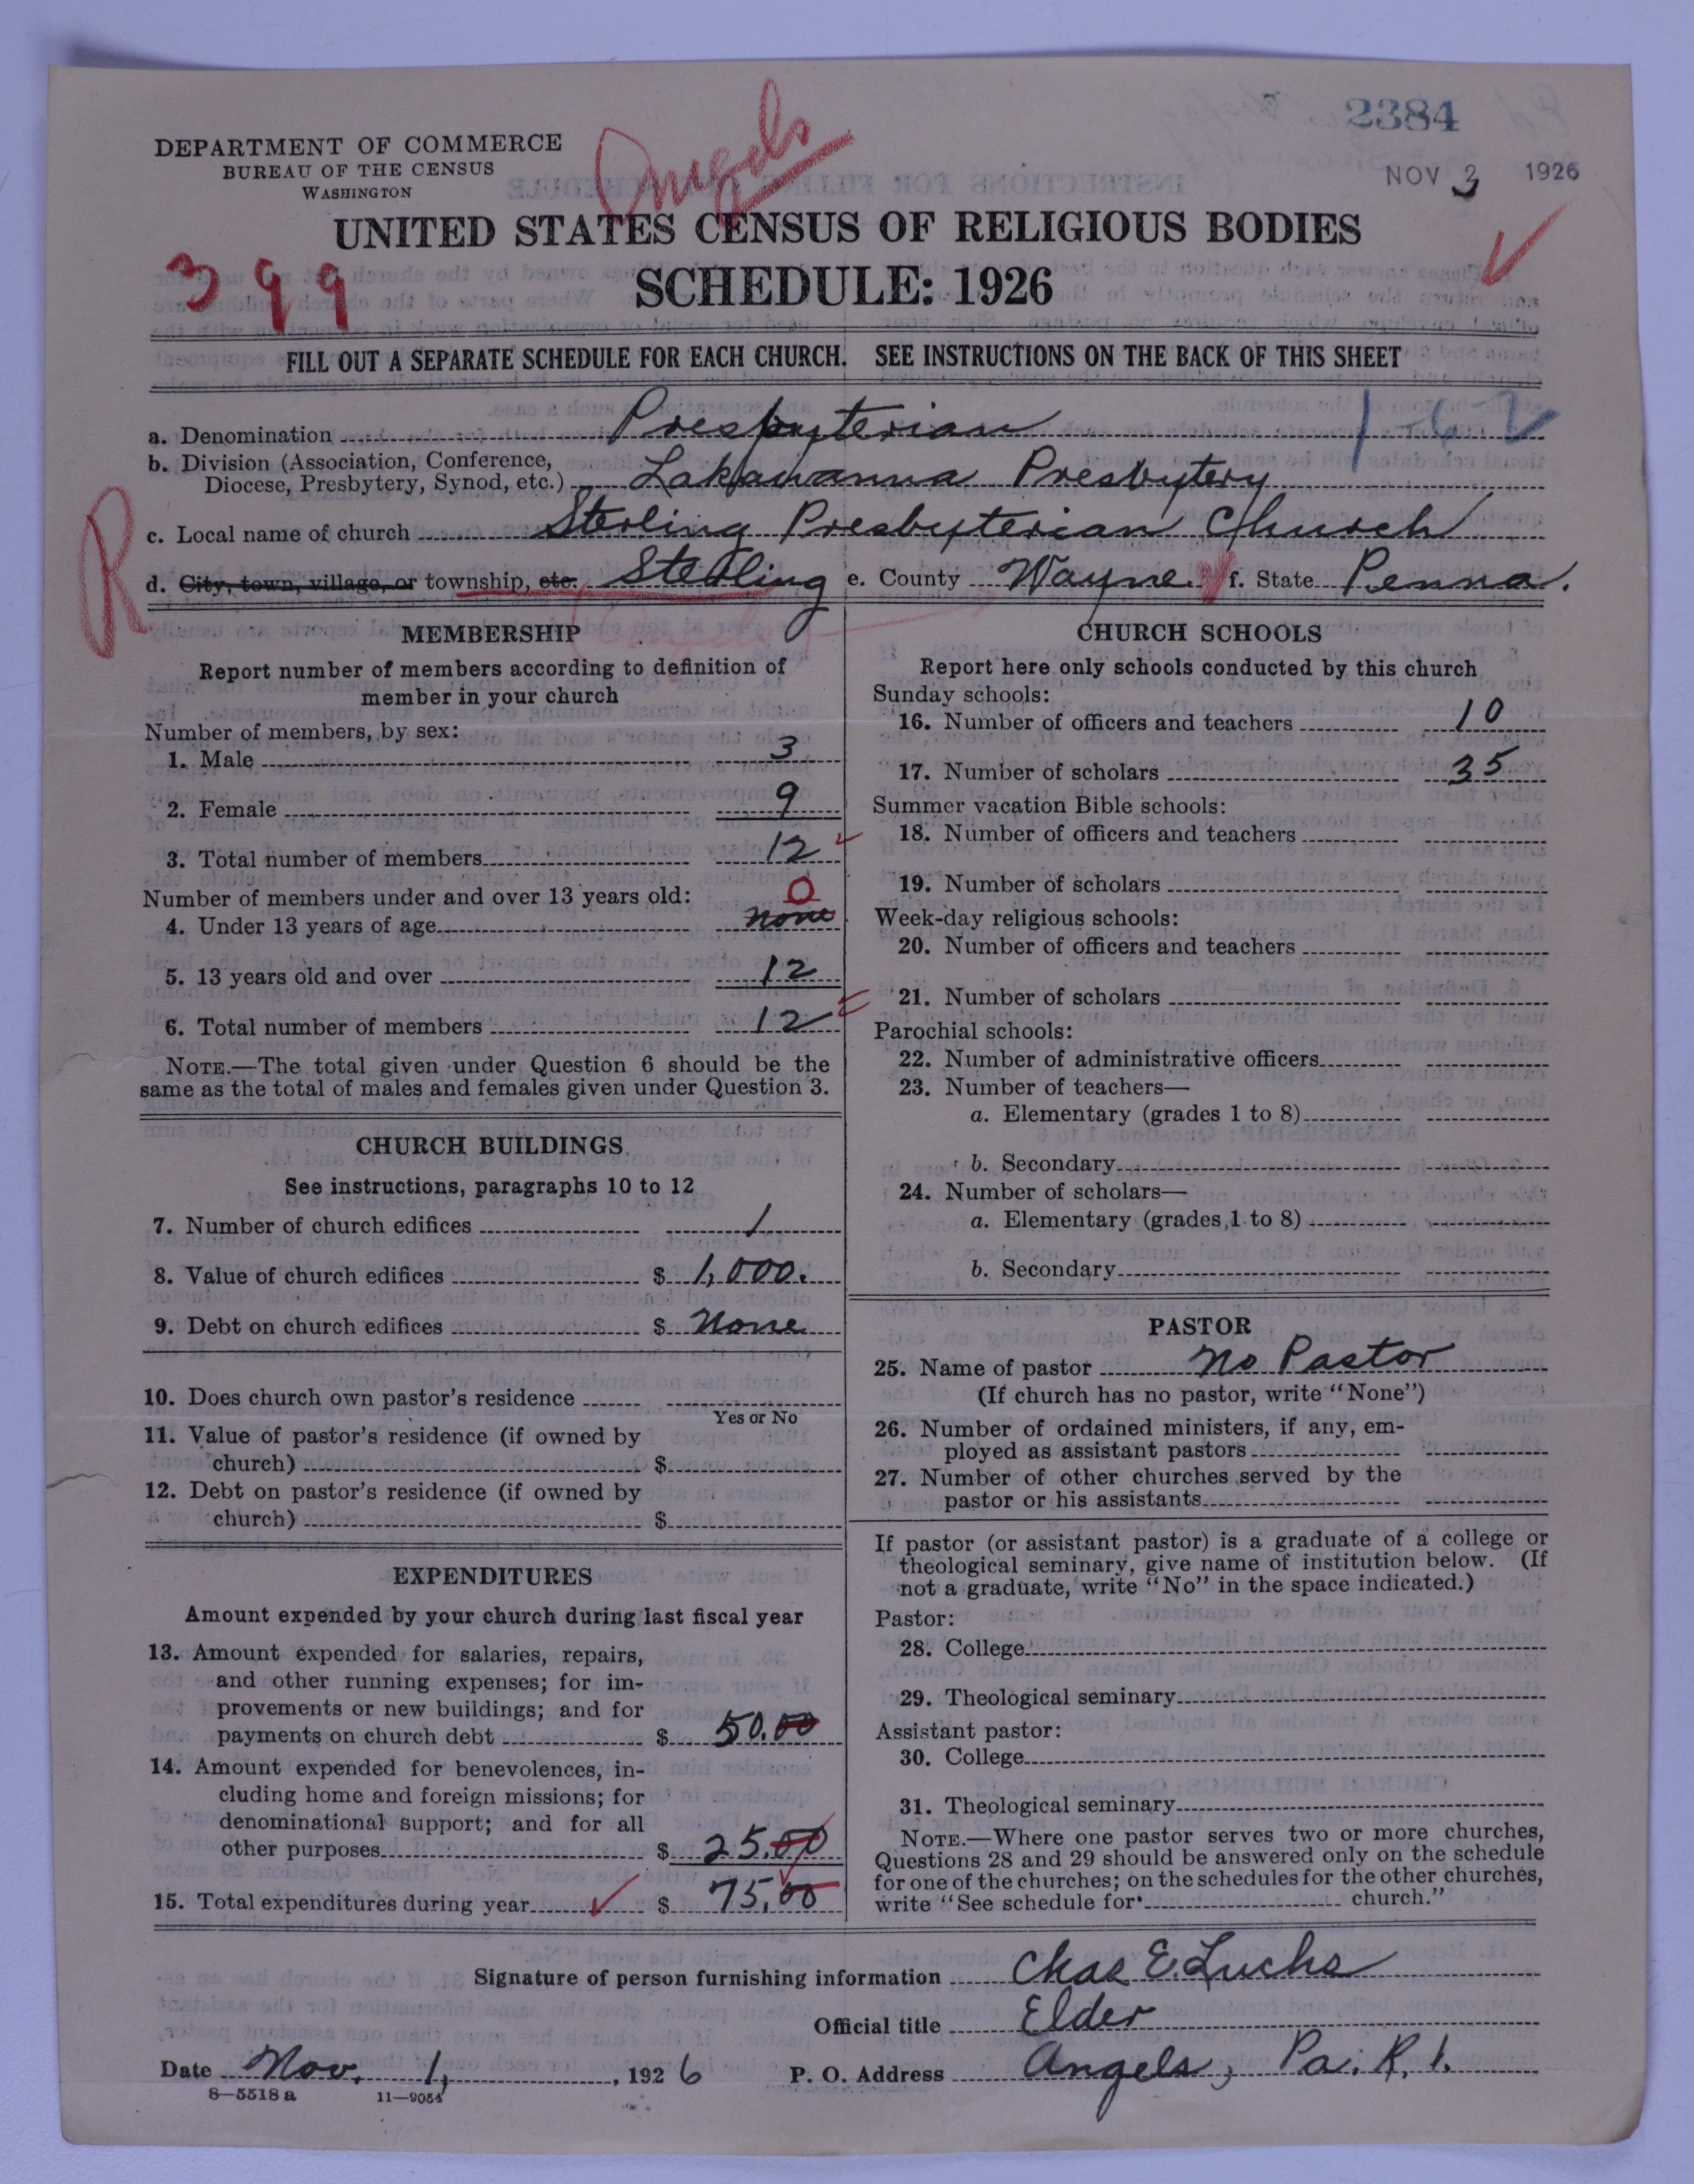 2384
NOV 3 1926
Angels
DEPARTMENT OF COMMERCE
BUREAU OF THE CENSUS
WASHINGTON
UNITED STATES CENSUS OF RELIGIOUS BODIES
399
SCHEDULE: 1926
FILL OUT A SEPARATE SCHEDULE FOR EACH CHURCH. SEE INSTRUCTIONS ON THE BACK OF THIS SHEET
a. Denomination Presbyterian
b. Division (Association, Conference,
Diocese, Presbytery, Synod, etc.) Lakawanna Presbytery
R
c. Local name of church Sterling Presbyterian Church
d. City, town, village, or township, etc. Sterling e. County Wayne f. State Penna.
MEMBERSHIP
Report number of members according to definition of
member in your church
Number of members, by sex:
1. Male 3
2. Female 9
3. Total number of members 12
Number of members under and over 13 years old: 0
4. Under 13 years of age none
5. 13 years old and over 12
6. Total number of members 12
NOTE.—The total given under Question 6 should be the
same as the total of males and females given under Question 3.
CHURCH BUILDINGS
See instructions, paragraphs 10 to 12
7. Number of church edifices 1
8. Value of church edifices $ 1,000.
9. Debt on church edifices $ None
10. Does church own pastor's residence
Yes or No
11. Value of pastor's residence (if owned by
church) $
12. Debt on pastor's residence (if owned by
church) $
EXPENDITURES
Amount expended by your church during last fiscal year
13. Amount expended for salaries, repairs,
and other running expenses; for im-
provements or new buildings; and for
payments on church debt $ 50.00
14. Amount expended for benevolences, in-
cluding home and foreign missions; for
denominational support; and for all
other purposes $ 25.00
15. Total expenditures during year $ 75.00
CHURCH SCHOOLS
Report here only schools conducted by this church
Sunday schools:
16. Number of officers and teachers 10
17. Number of scholars 35
Summer vacation Bible schools:
18. Number of officers and teachers
19. Number of scholars
Week-day religious schools:
20. Number of officers and teachers
21. Number of scholars
Parochial schools:
22. Number of administrative officers
23. Number of teachers—
a. Elementary (grades 1 to 8)
b. Secondary
24. Number of scholars—
a. Elementary (grades 1 to 8)
b. Secondary
PASTOR
25. Name of pastor No Pastor
(If church has no pastor, write "None")
26. Number of ordained ministers, if any, em-
ployed as assistant pastors
27. Number of other churches served by the
pastor or his assistants
If pastor (or assistant pastor) is a graduate of a college or
theological seminary, give name of institution below. (If
not a graduate, write "No" in the space indicated.)
Pastor:
28. College
29. Theological seminary
Assistant pastor:
30. College
31. Theological seminary
NOTE.—Where one pastor serves two or more churches,
Questions 28 and 29 should be answered only on the schedule
for one of the churches; on the schedules for the other churches,
write "See schedule for church."
Signature of person furnishing information Chas E. Luchs
Official title Elder
Date Nov. 1, 1926 P. O. Address Angels, Pa. R. 1.
8—5518 a 11—9054